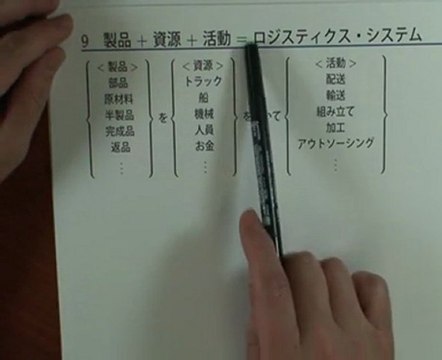 9 製品 + 資源 + 活動 = ロジスティクス・システム
< 製品 >
部品
原材料
半製品
完成品
返品
⋮
を
< 資源 >
トラック
船
機械
人員
お金
⋮
を いて
< 活動 >
配送
輸送
組み立て
加工
アウトソーシング
⋮